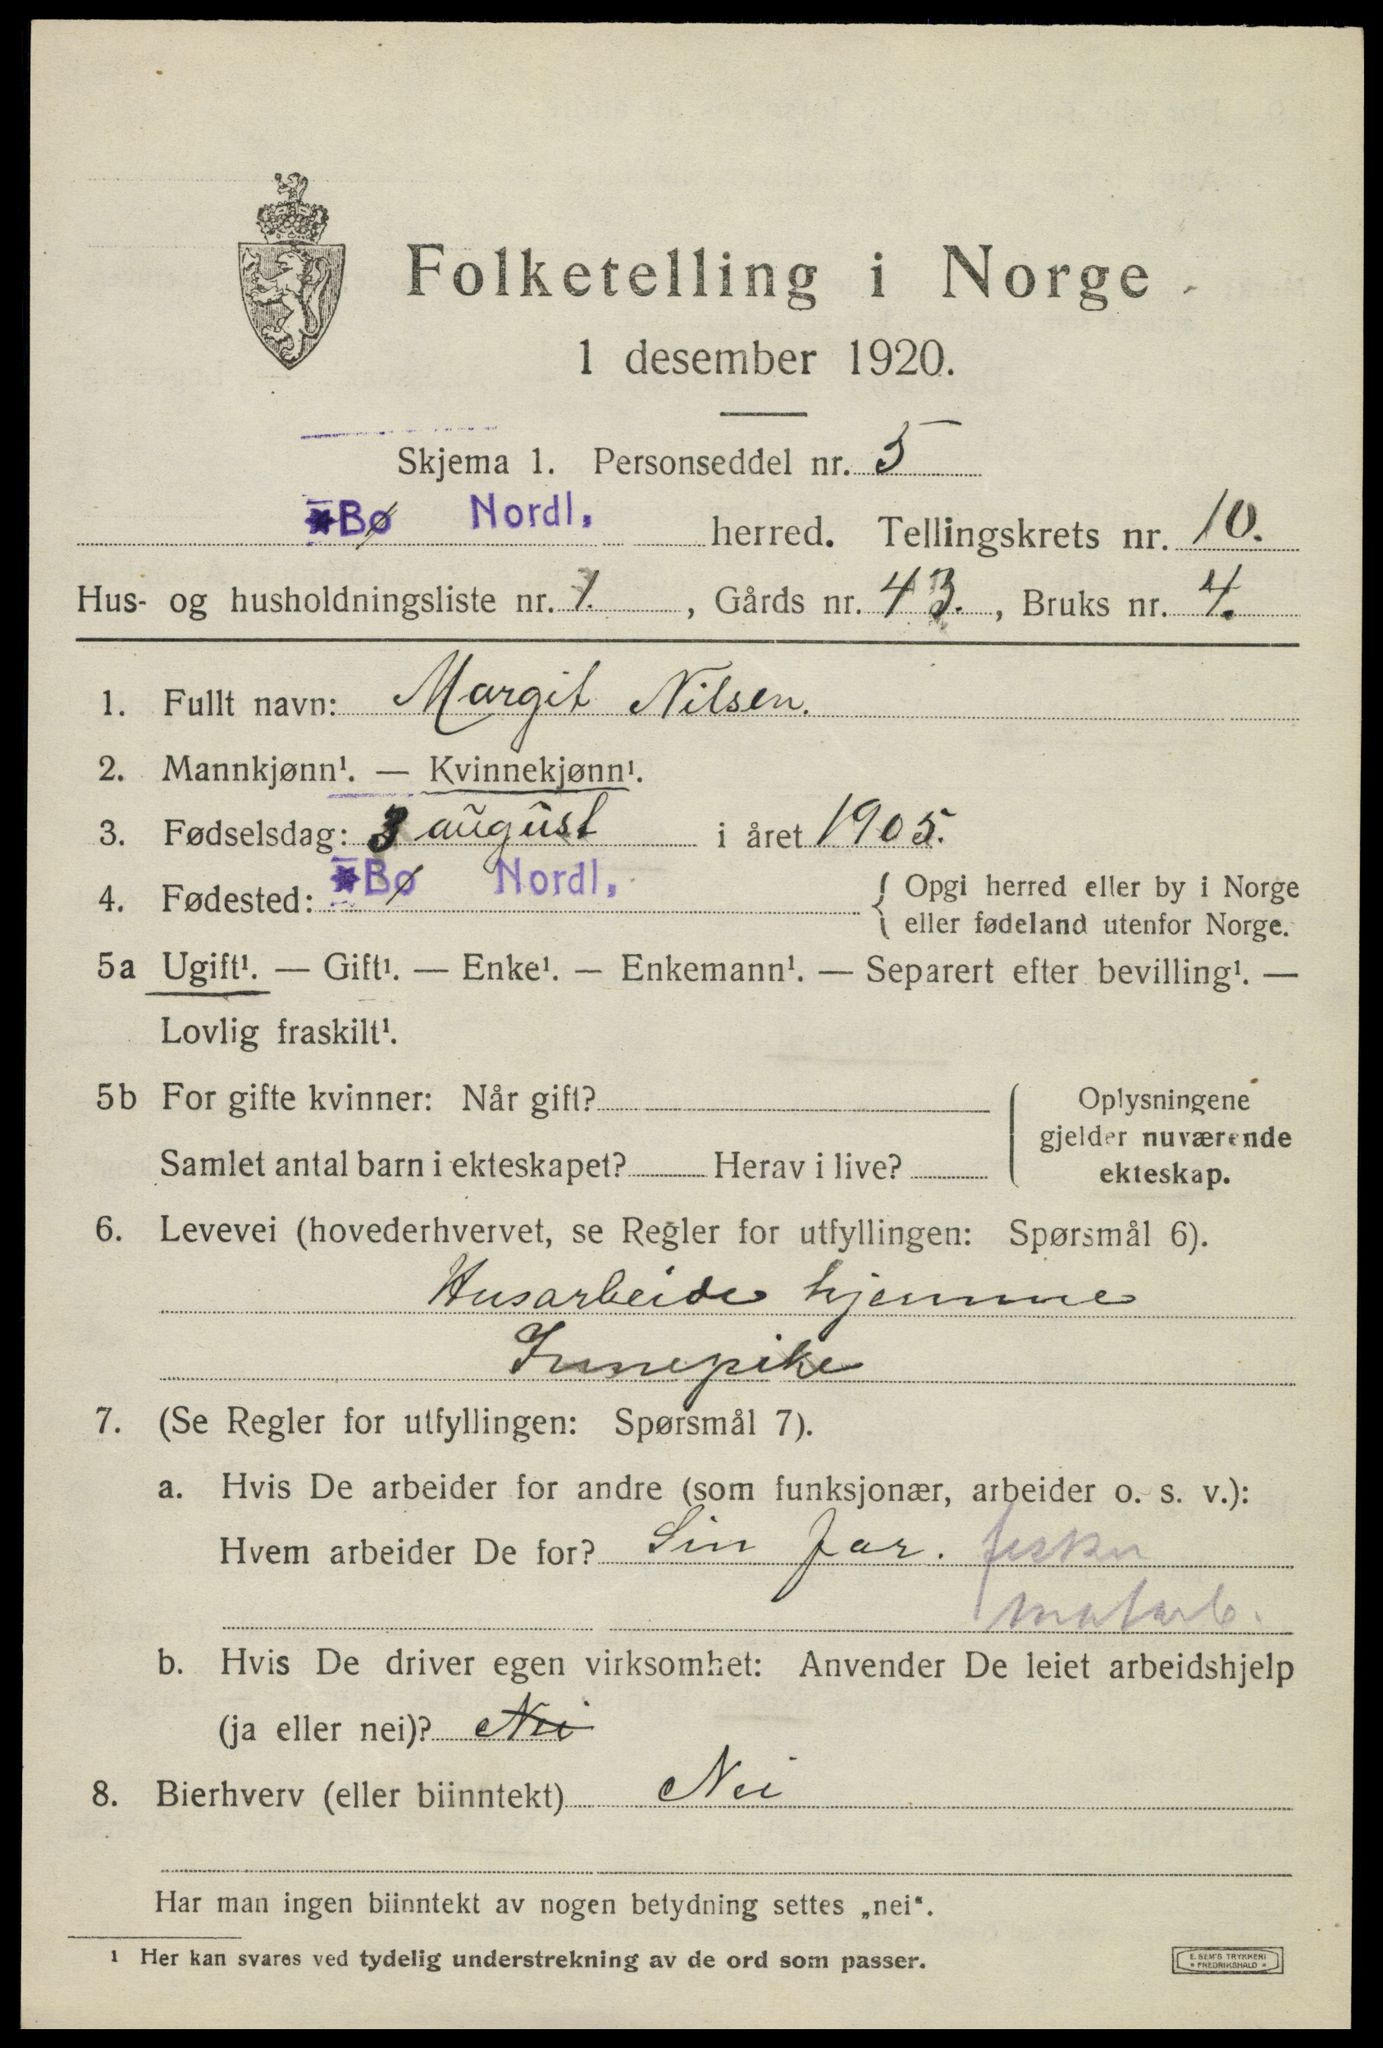 Folketelling i Norge
1 desember 1920.
Skjema 1. Personseddel nr. 5
*Bø Nordl. herred. Tellingskrets nr. 10.
Hus- og husholdningsliste nr. 1. , Gårds nr. 43. , Bruks nr. 4.
1. Fullt navn: Margit Nilsen.
2. Mannkjønn¹. — Kvinnekjønn¹.
3. Fødselsdag: 3 august i året 1905.
4. Fødested: *Bø Nordl. { Opgi herred eller by i Norge
eller fødeland utenfor Norge.
5a Ugift¹. — Gift¹. — Enke¹. — Enkemann¹. — Separert efter bevilling¹. —
Lovlig fraskilt¹.
5b For gifte kvinner: Når gift?
Samlet antal barn i ekteskapet? Herav i live?
Oplysningene
gjelder nuværende
ekteskap.
6. Levevei (hovederhvervet, se Regler for utfyllingen: Spørsmål 6).
Husarbeide hjemme
Innepike
7. (Se Regler for utfyllingen: Spørsmål 7).
a. Hvis De arbeider for andre (som funksjonær, arbeider o. s. v.):
Hvem arbeider De for? Sin far. fisker
b. Hvis De driver egen virksomhet: Anvender De leiet arbeidshjelp
(ja eller nei)? Nei
8. Bierhverv (eller biinntekt) Nei
Har man ingen biinntekt av nogen betydning settes „nei“.
¹ Her kan svares ved tydelig understrekning av de ord som passer.
E. SEM'S TRYKKERI
* FREDRIKSHALD *